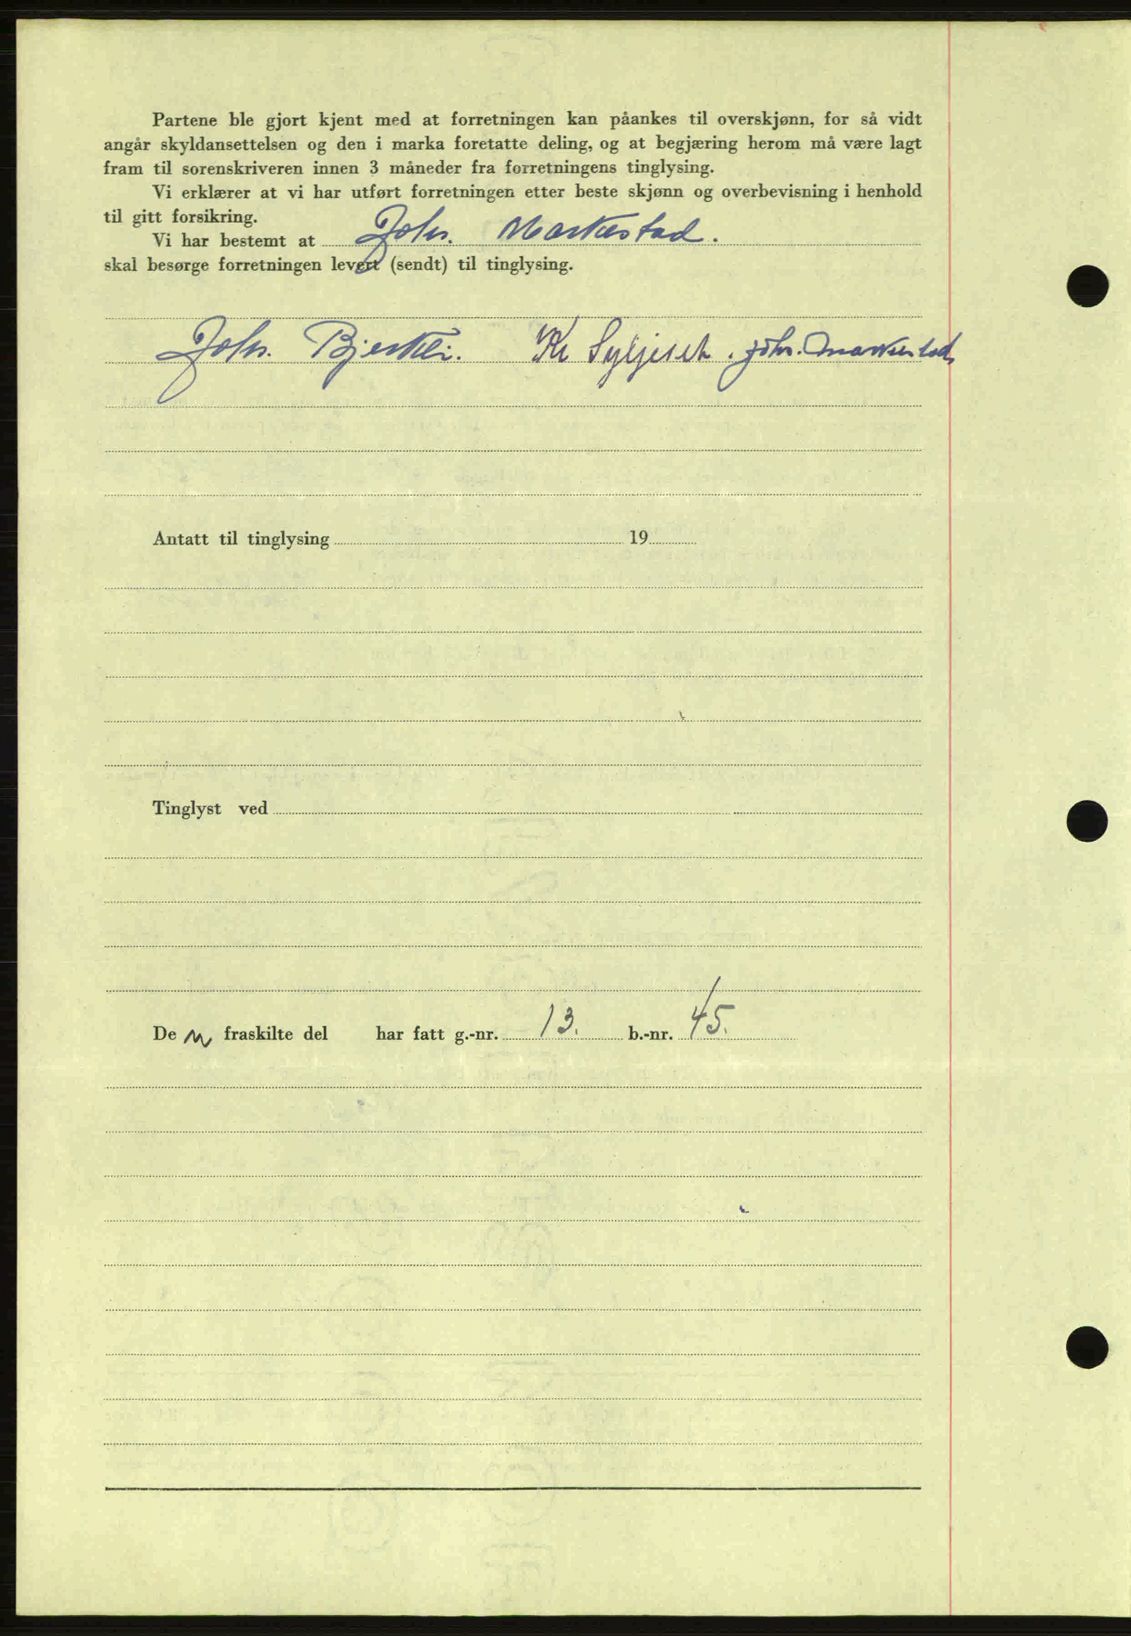 Partene ble gjort kjent med at forretningen kan påankes til overskjønn, for så vidt
angår skyldansettelsen og den i marka foretatte deling, og at begjæring herom må være lagt
fram til sorenskriveren innen 3 måneder fra forretningens tinglysing.
Vi erklærer at vi har utført forretningen etter beste skjønn og overbevisning i henhold
til gitt forsikring.
Vi har bestemt at Johs. Markestad.
skal besørge forretningen levert (sendt) til tinglysing.
Johs. Bjerkli. Kr Syljeset. Johs. Markestad
Antatt til tinglysing 19
Tinglyst ved
De n fraskilte del har fatt g.-nr. 13. b.-nr. 45.